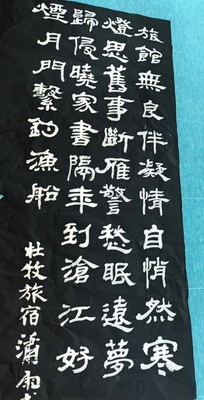 旅館無良伴凝情自悄然寒
燈思舊事斷雁警愁眠遠夢
歸侵曉家書隔年到滄江好
煙月門繫釣漁船
杜牧旅宿